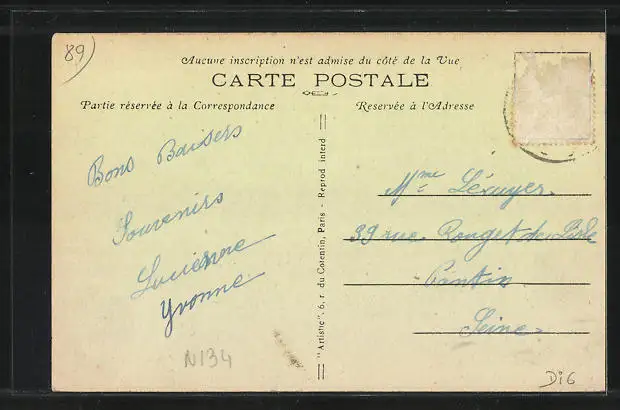 89
Aucune inscription n'est admise du côté de la Vue
CARTE POSTALE
Partie réservée à la Correspondance
Reservée à l'Adresse
Bons Baisers
Souvenirs
Lucienne
Yvonne
N134
"Artistic". 6, r. du Cotentin, Paris - Reprod interd
Mme Lécuyer
39 rue Rouget de Lisle
Pantin
Seine
Di6